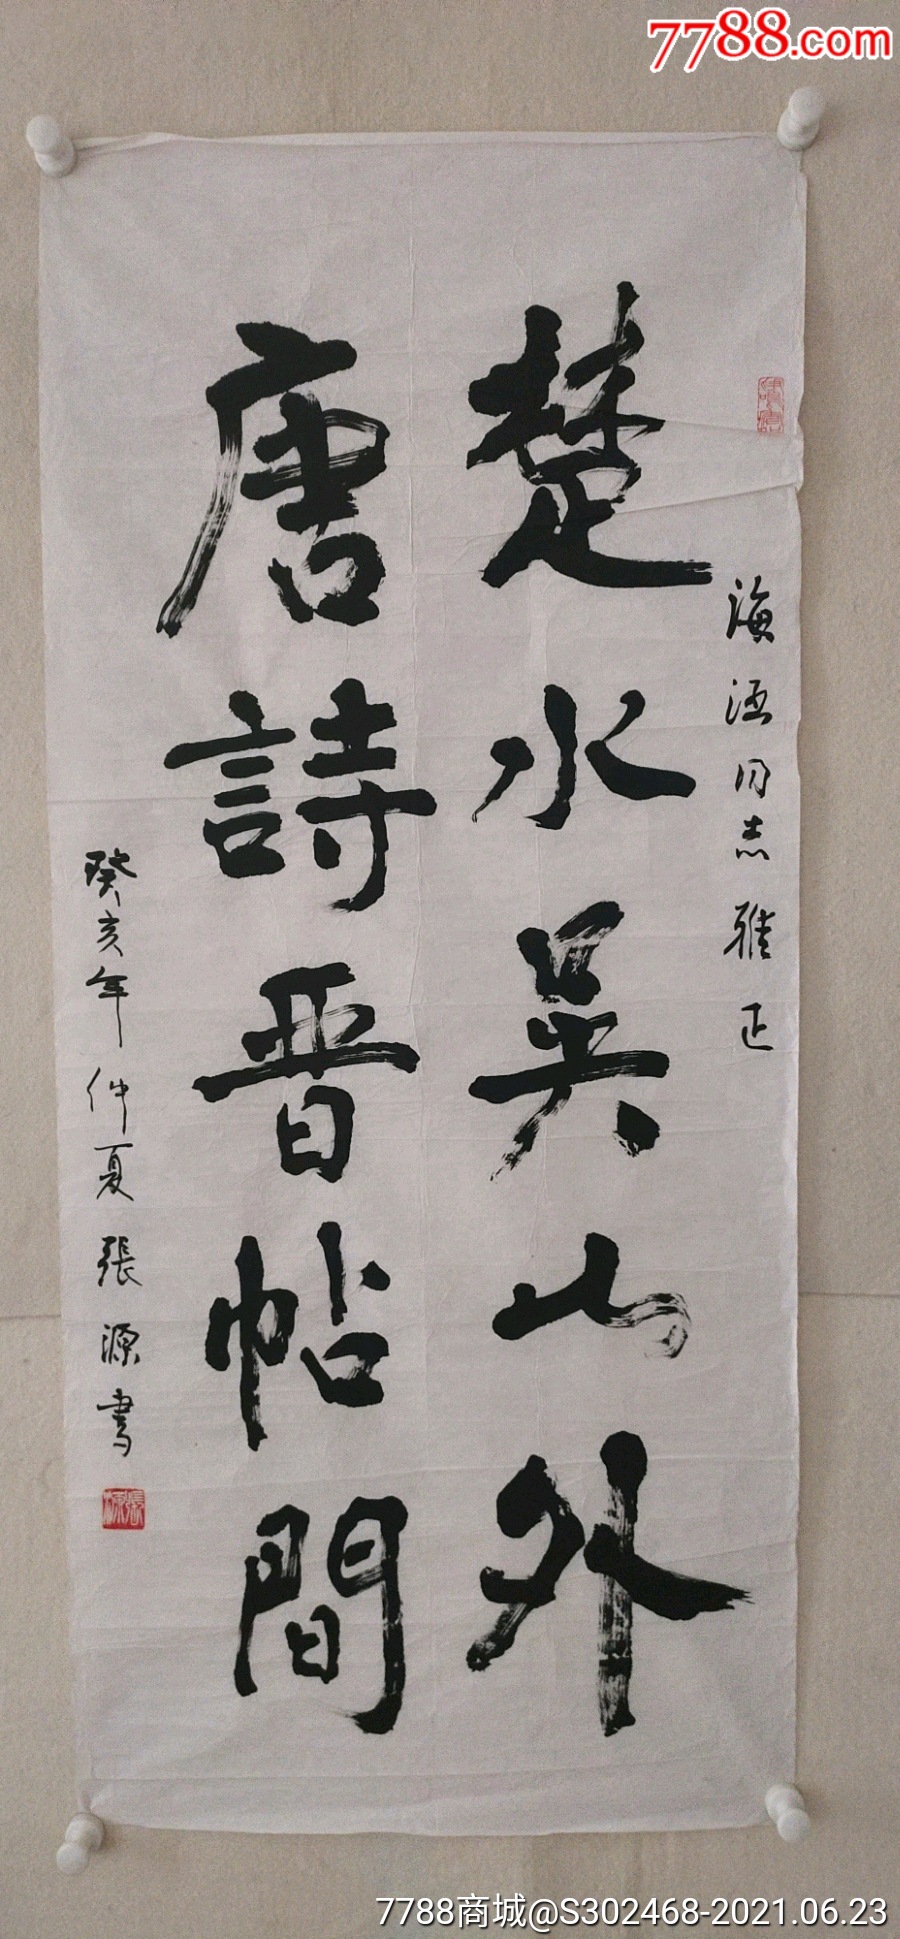 7788.com
海涵同志雅正
楚水吴山外
唐詩晋帖間
癸亥年仲夏張源書
張源
7788商城@S302468-2021.06.23